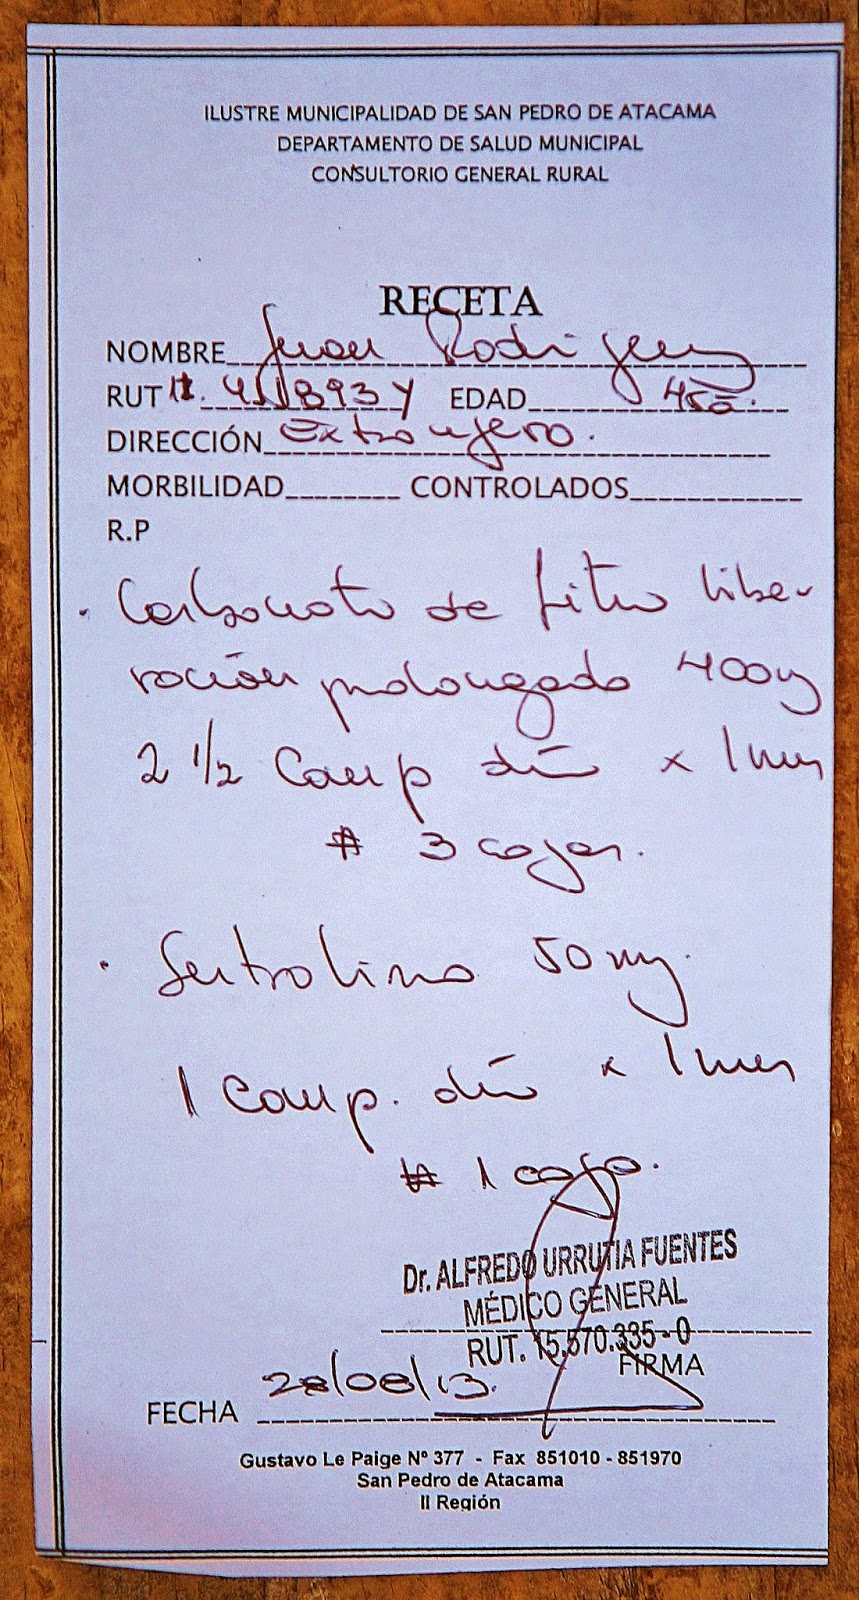 ILUSTRE MUNICIPALIDAD DE SAN PEDRO DE ATACAMA
DEPARTAMENTO DE SALUD MUNICIPAL
CONSULTORIO GENERAL RURAL
RECETA
NOMBRE Juan Rodriguez
RUT EDAD
DIRECCIÓN Extranjero.
MORBILIDAD CONTROLADOS
R.P
. Carbonato de Litio libe-
ración prolongado 400mg
2 1/2 Comp día x 1 mes
# 3 cajas.
. Sertralina 50mg.
1 Comp. día x 1 mes
# 1 caja.
Dr. ALFREDO URRUTIA FUENTES
MÉDICO GENERAL
RUT. 15.570.335-0
FIRMA
FECHA 28/08/13.
Gustavo Le Paige Nº 377 - Fax 851010 - 851970
San Pedro de Atacama
II Región